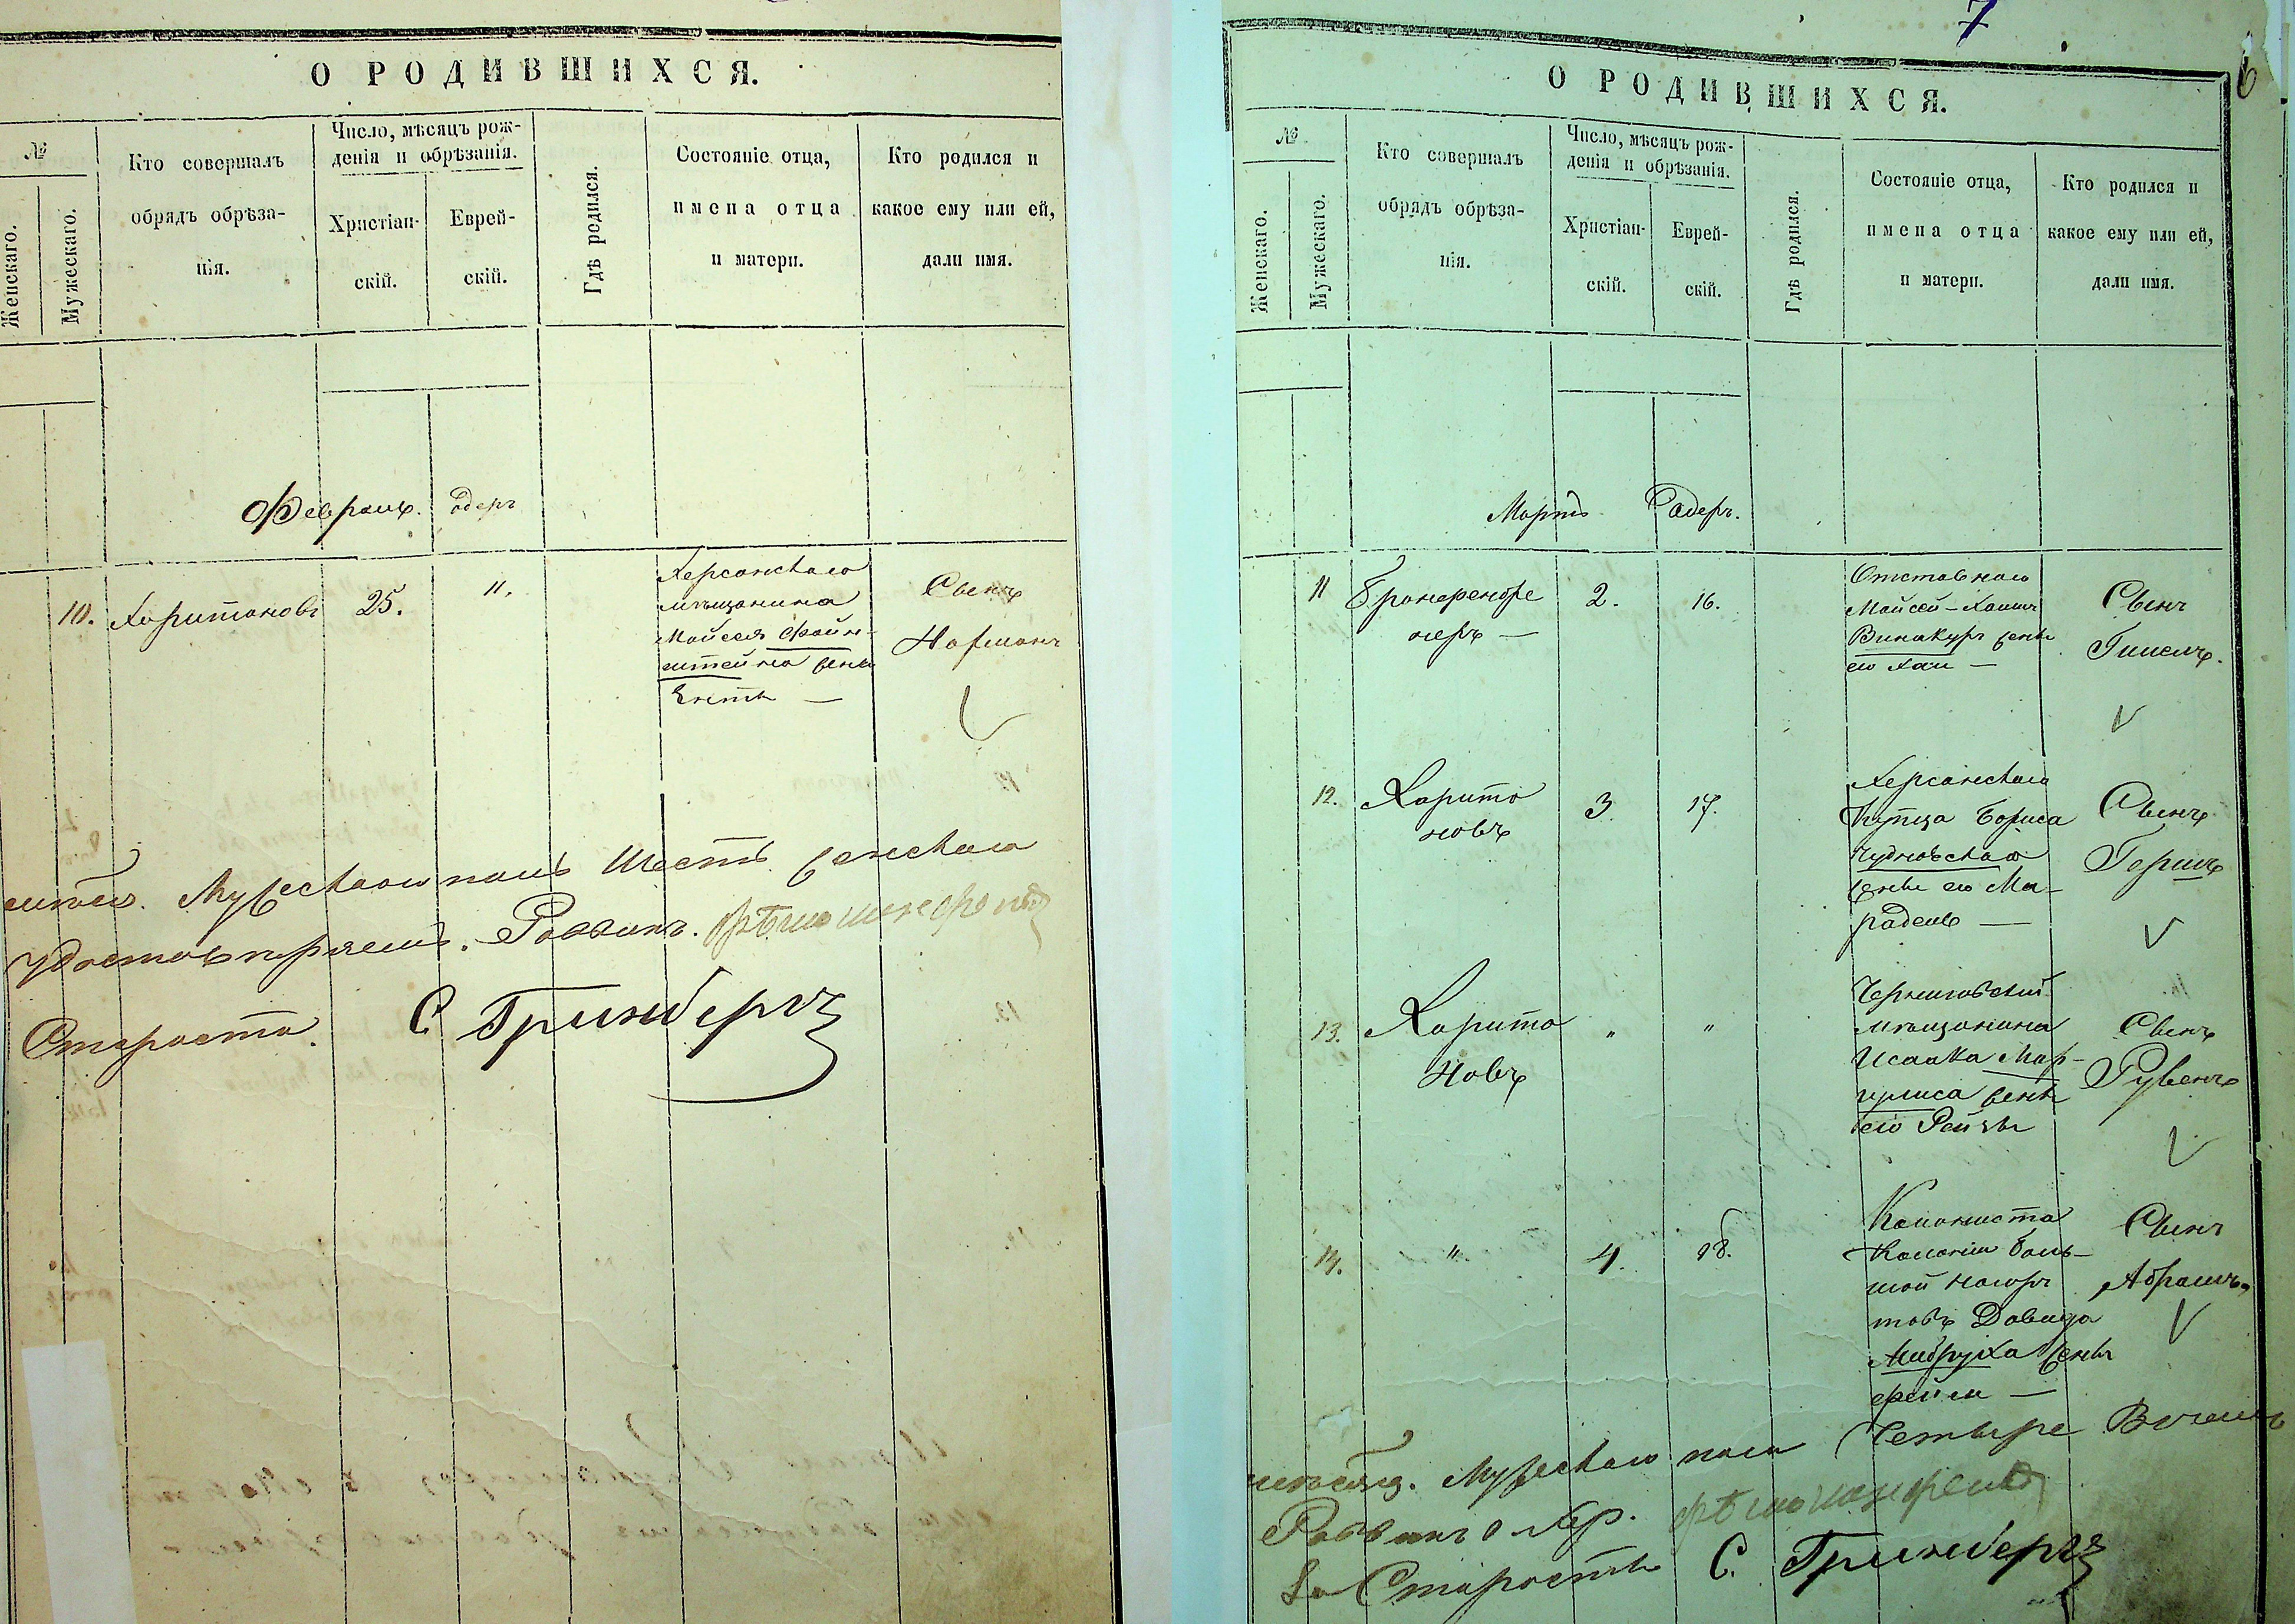 О РОДИВШИХСЯ.
№
Женскаго.
Мужескаго.
Кто совершалъ
обрядъ обрѣза-
нія.
Число, мѣсяцъ рож-
денія и обрѣзанія.
Христіан-
скій.
Еврей-
скій.
Гдѣ родился.
Состояніе отца,
имена отца
и матери.
Кто родился и
какое ему или ей,
дали имя.
Февраль. Одеръ
10. Харитоновъ 25. 11.
Херсонскаго
мѣщанина
Мойсея Файн-
штейна жены
Енты —
Сынъ
Нафманъ
Мужескаго полъ Шесть женскаго
удостовѣряемъ. Раввинъ.
Староста. С Гринбергъ
7
6
О РОДИВШИХСЯ.
№
Женскаго.
Мужескаго.
Кто совершалъ
обрядъ обрѣза-
нія.
Число, мѣсяцъ рож-
денія и обрѣзанія.
Христіан-
скій.
Еврей-
скій.
Гдѣ родился.
Состояніе отца,
имена отца
и матери.
Кто родился и
какое ему или ей,
дали имя.
Мартъ Одеръ.
11 2. 16.
Отставнаго
Мойсей-Хаимъ
Винакуръ жены
его Хаи —
Сынъ
Гилель.
12. Харито
новъ
3. 17.
Херсонскаго
Купца Бориса
Чудновскаго
жены его Ма-
Сынъ
Гершъ
13. Харито
новъ
" "
Черниговский
мѣщанина
Исаака Мар-
гулиса жены
его Рейзы
Сынъ
Рувенъ
14. " 4. 18.
Колониста
Колоніи боль-
шой нагар-
товъ Давида
жены
фейги —
Сынъ
Абрамъ.
Мужескаго пола Четыре
Раввинъ Хер.
За Старосты С. Гринбергъ